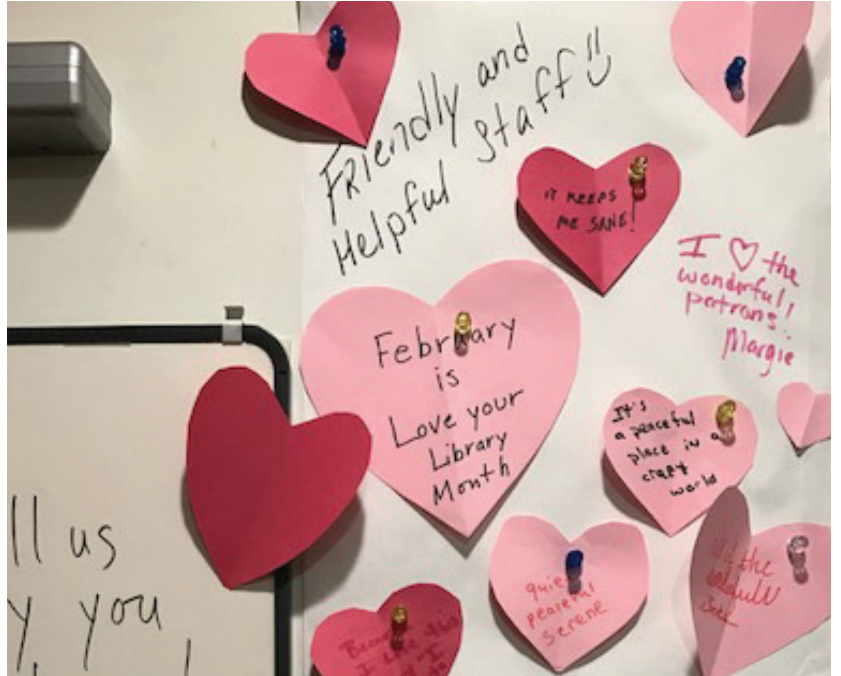 Friendly and
Helpful Staff
IT KEEPS
ME SANE!
I ♡ the
wonderful!
patrons.
Margie
February
is
Love your
Library
Month
It's
a peaceful
place in a
crazy
world
ll us
y you
quiet
peaceful
serene
the
I